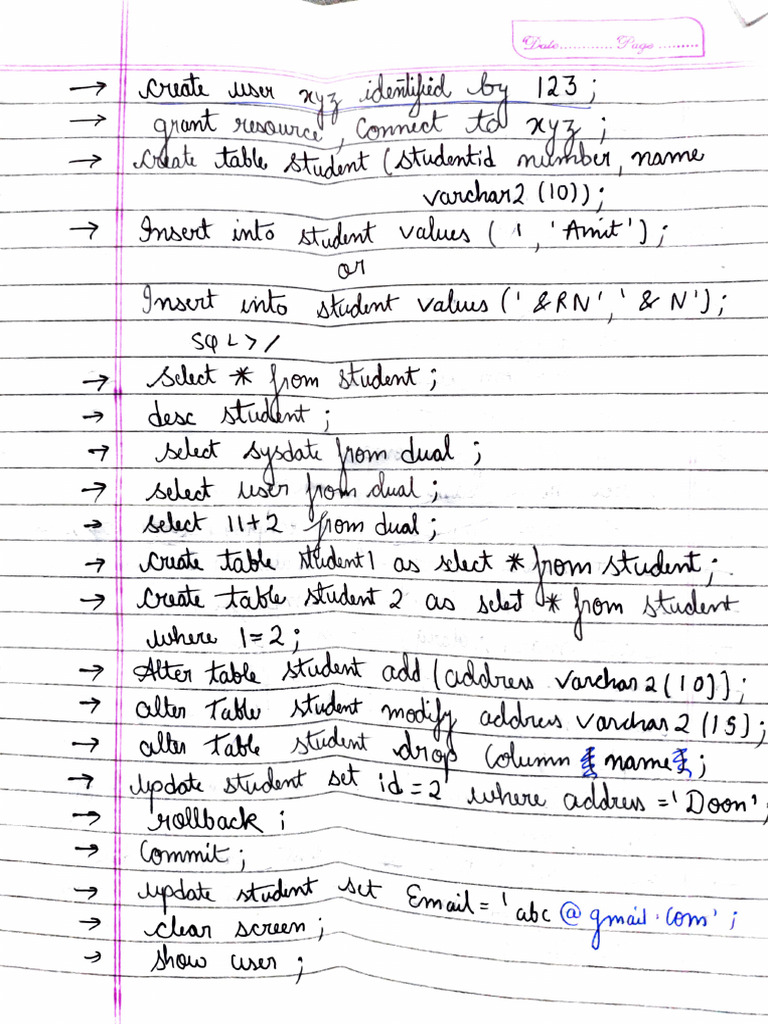 Date............ Page .........
→ create user xyz identified by 123;
→ grant resource, Connect to xyz ;
→ create table student (studentid number, name
varchar2 (10));
→ Insert into student values ( 1 , 'Amit') ;
or
Insert into student values (' &RN',' & N');
SQL>/
→ select * from student ;
→ desc student ;
→ select sysdate from dual ;
→ select user from dual ;
→ select 11+2 from dual ;
→ create table student1 as select * from student ;
→ create table student 2 as select * from student
where 1=2 ;
→ Alter table student add (address varchar2 (10));
→ alter table student modify address varchar2 (15) ;
→ alter table student drop Column name ;
→ update student set id=2 where address ='Doon' ;
→ rollback ;
→ Commit ;
→ update student set Email = 'abc @gmail.com' ;
→ clear screen ;
→ show user ;